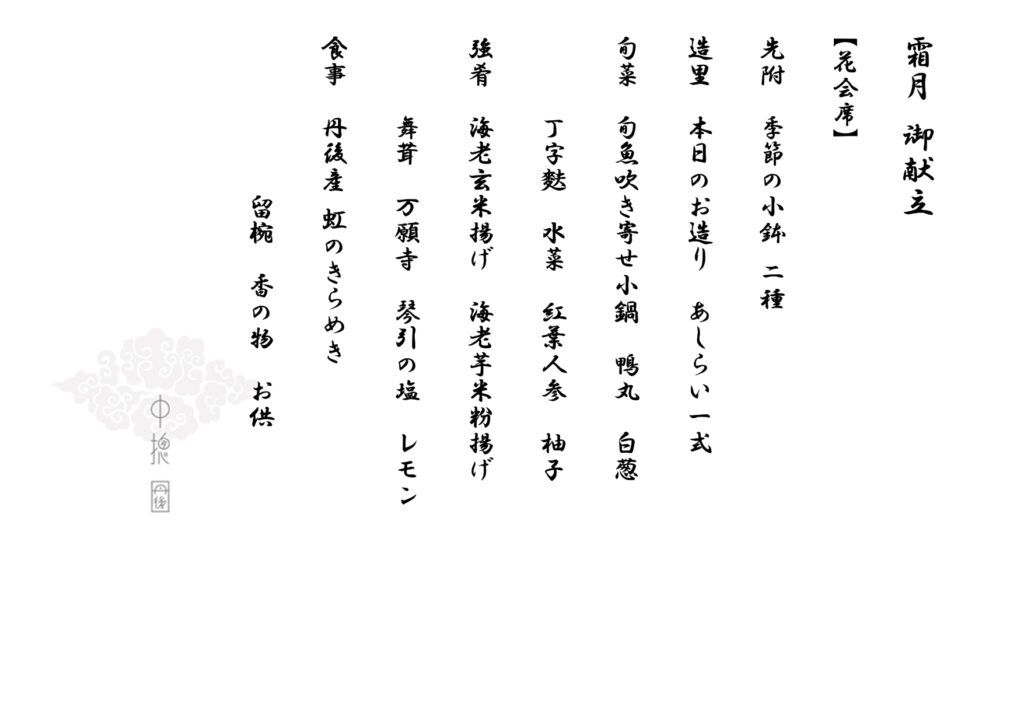 霜月 御献立
【花会席】
先附 季節の小鉢 二種
造里 本日のお造り あしらい一式
旬菜 旬魚吹き寄せ小鍋 鴨丸 白葱
丁字麩 水菜 紅葉人参 柚子
強肴 海老玄米揚げ 海老芋米粉揚げ
舞茸 万願寺 琴引の塩 レモン
食事 丹後産 虹のきらめき
留椀 香の物 お供
中
丹後